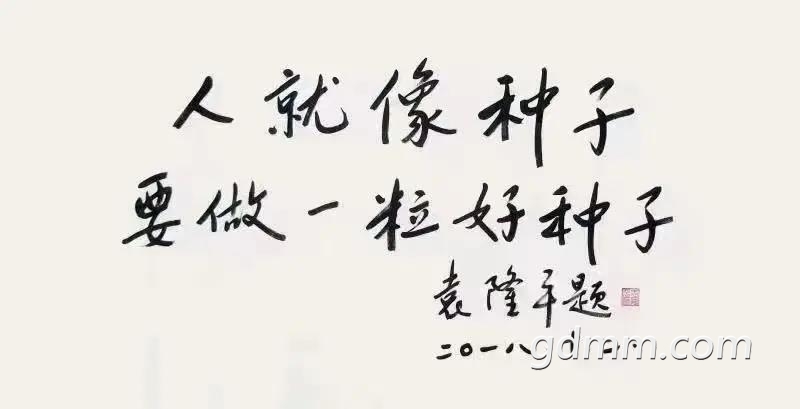 人就像种子
要做一粒好种子
袁隆平题
二〇一八
gdmm.com